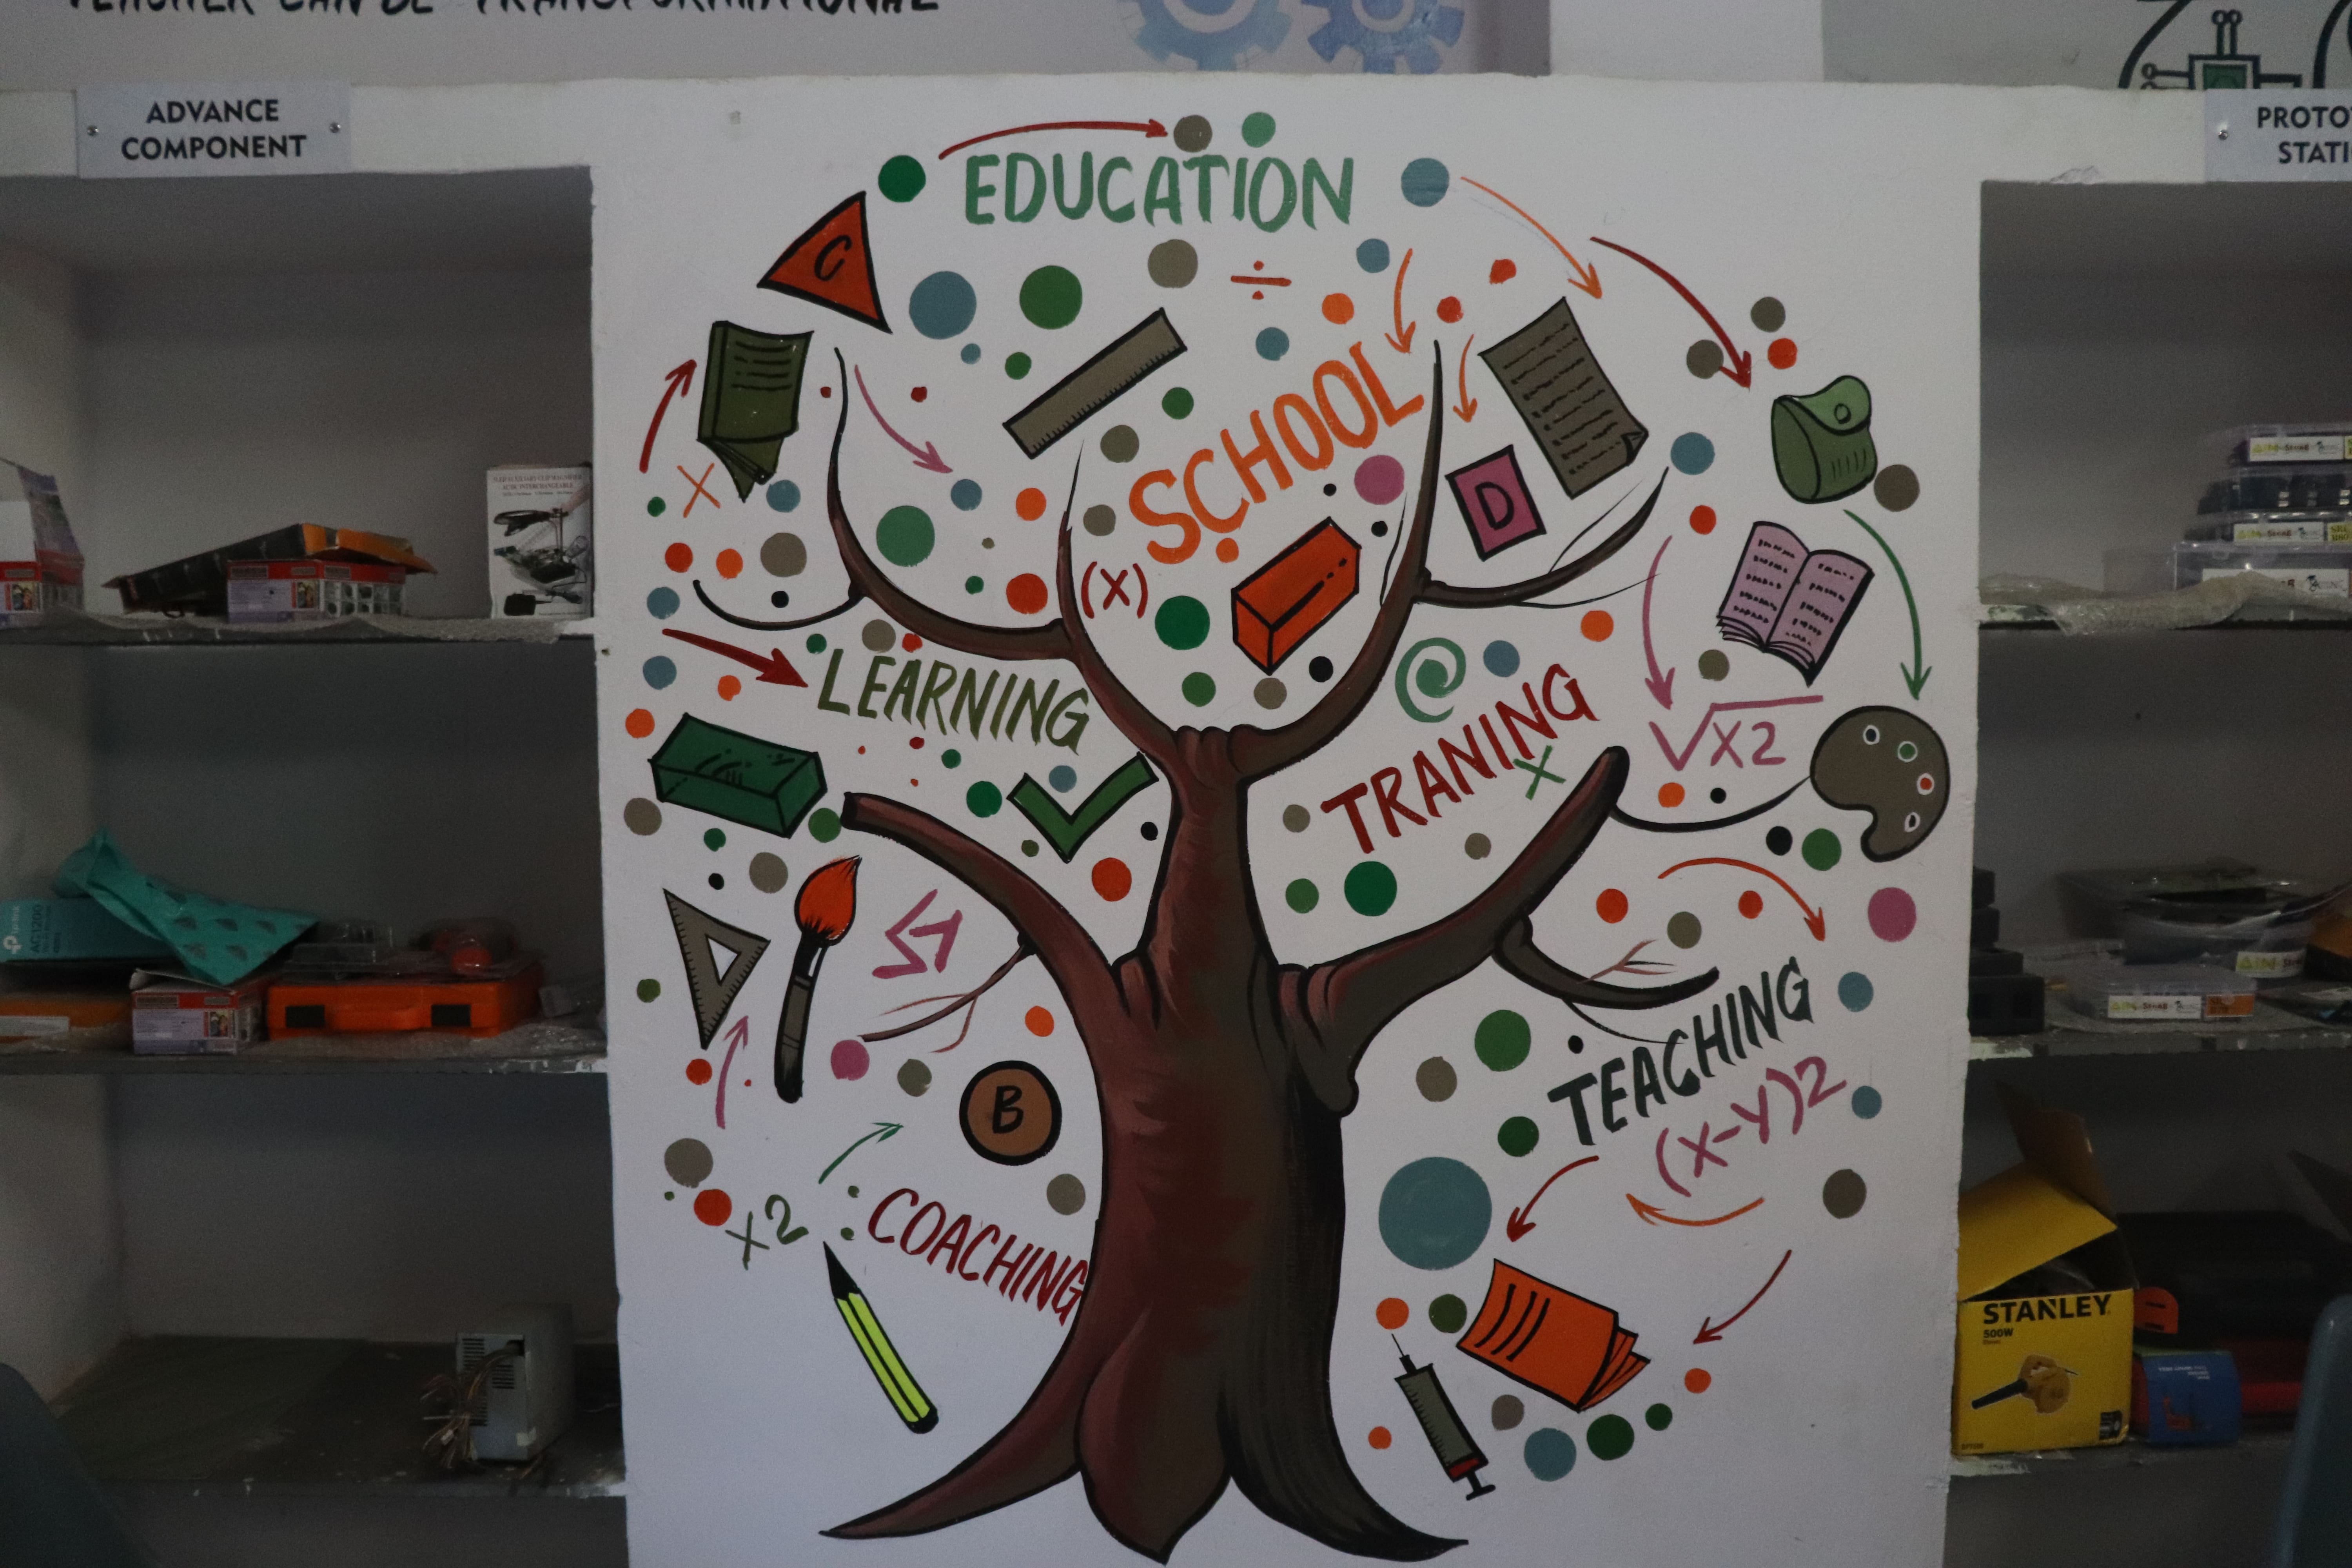 TEACHER CAN BE TRANSFORMATIONAL
ADVANCE
COMPONENT
EDUCATION
C
SCHOOL
D
(X)
LEARNING
@
TRANING
√X2
X
TEACHING
(X-Y)2
B
X2
COACHING
STANLEY
500W
AC1200